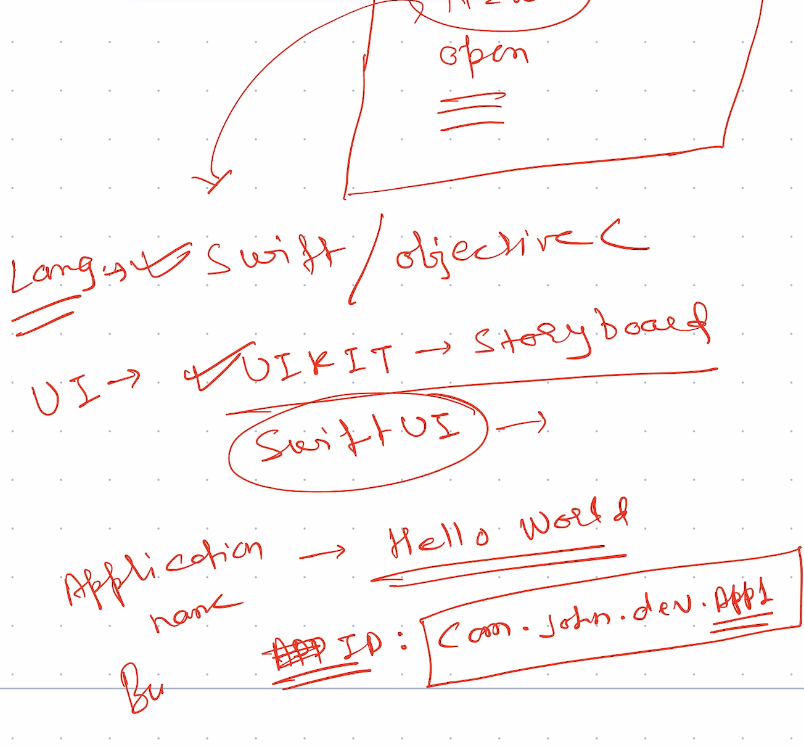 open
Lang → Swift / objective C
UI → UIKIT → Storyboard
SwiftUI →
Application → Hello World
name
ID: com.john.dev.App1
Bu